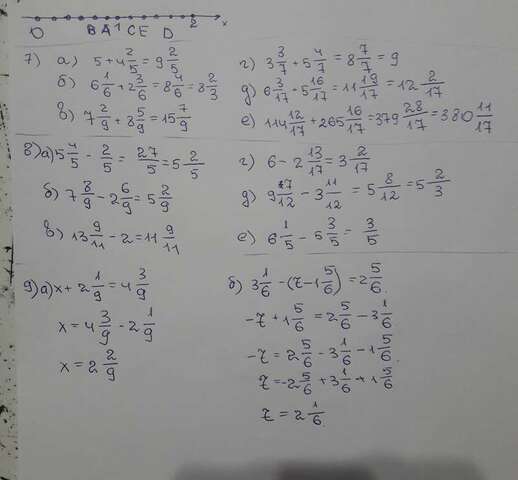 0 B A 1 C E D 2 x
7) а) 5+4 2/5=9 2/5
б) 6 1/6+2 3/6=8 4/6=8 2/3
в) 7 2/9+8 5/9=15 7/9
г) 3 3/7+5 4/7=8 7/7=9
д) 6 3/17+5 16/17=11 19/17=12 2/17
е) 114 12/17+265 16/17=379 28/17=380 11/17
8) а) 5 4/5-2/5=27/5=5 2/5
б) 7 8/9-2 6/9=5 2/9
в) 13 9/11-2=11 9/11
г) 6-2 13/17=3 2/17
д) 9 7/12-3 11/12=5 8/12=5 2/3
е) 6 1/5-5 3/5=3/5
9) а) x+2 1/9=4 3/9
x=4 3/9-2 1/9
x=2 2/9
б) 3 1/6-(z-1 5/6)=2 5/6.
-z+1 5/6=2 5/6-3 1/6
-z=2 5/6-3 1/6-1 5/6.
z=-2 5/6+3 1/6+1 5/6
z=2 1/6.